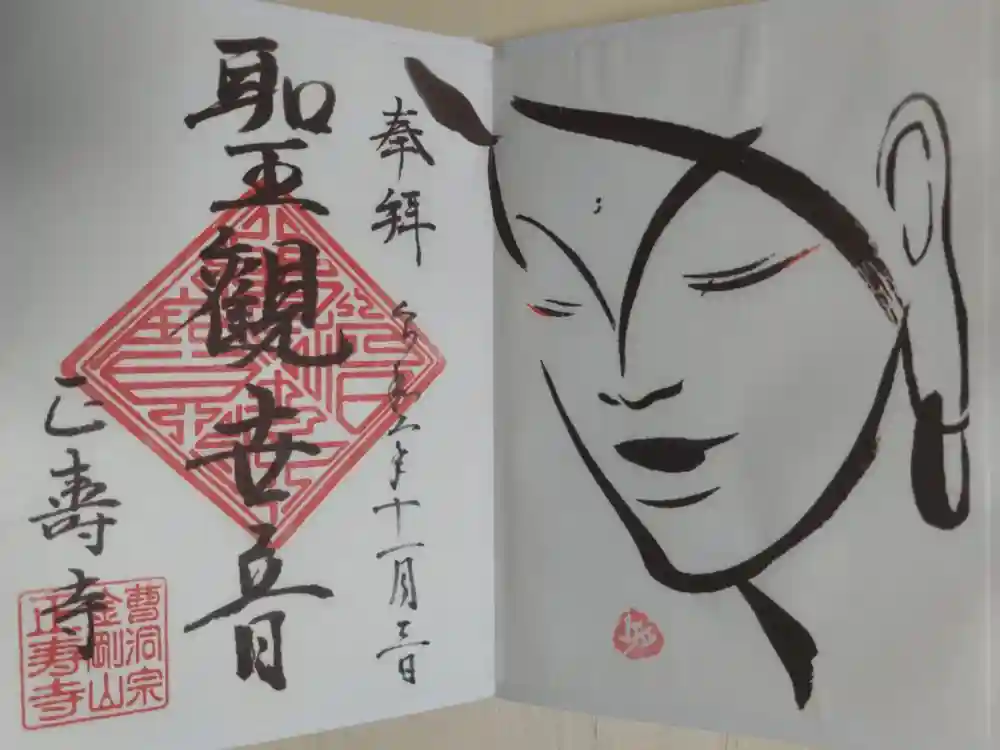 奉拝
令和三年十一月三日
聖観世音
正寿寺
曹洞宗
金剛山
正寿寺